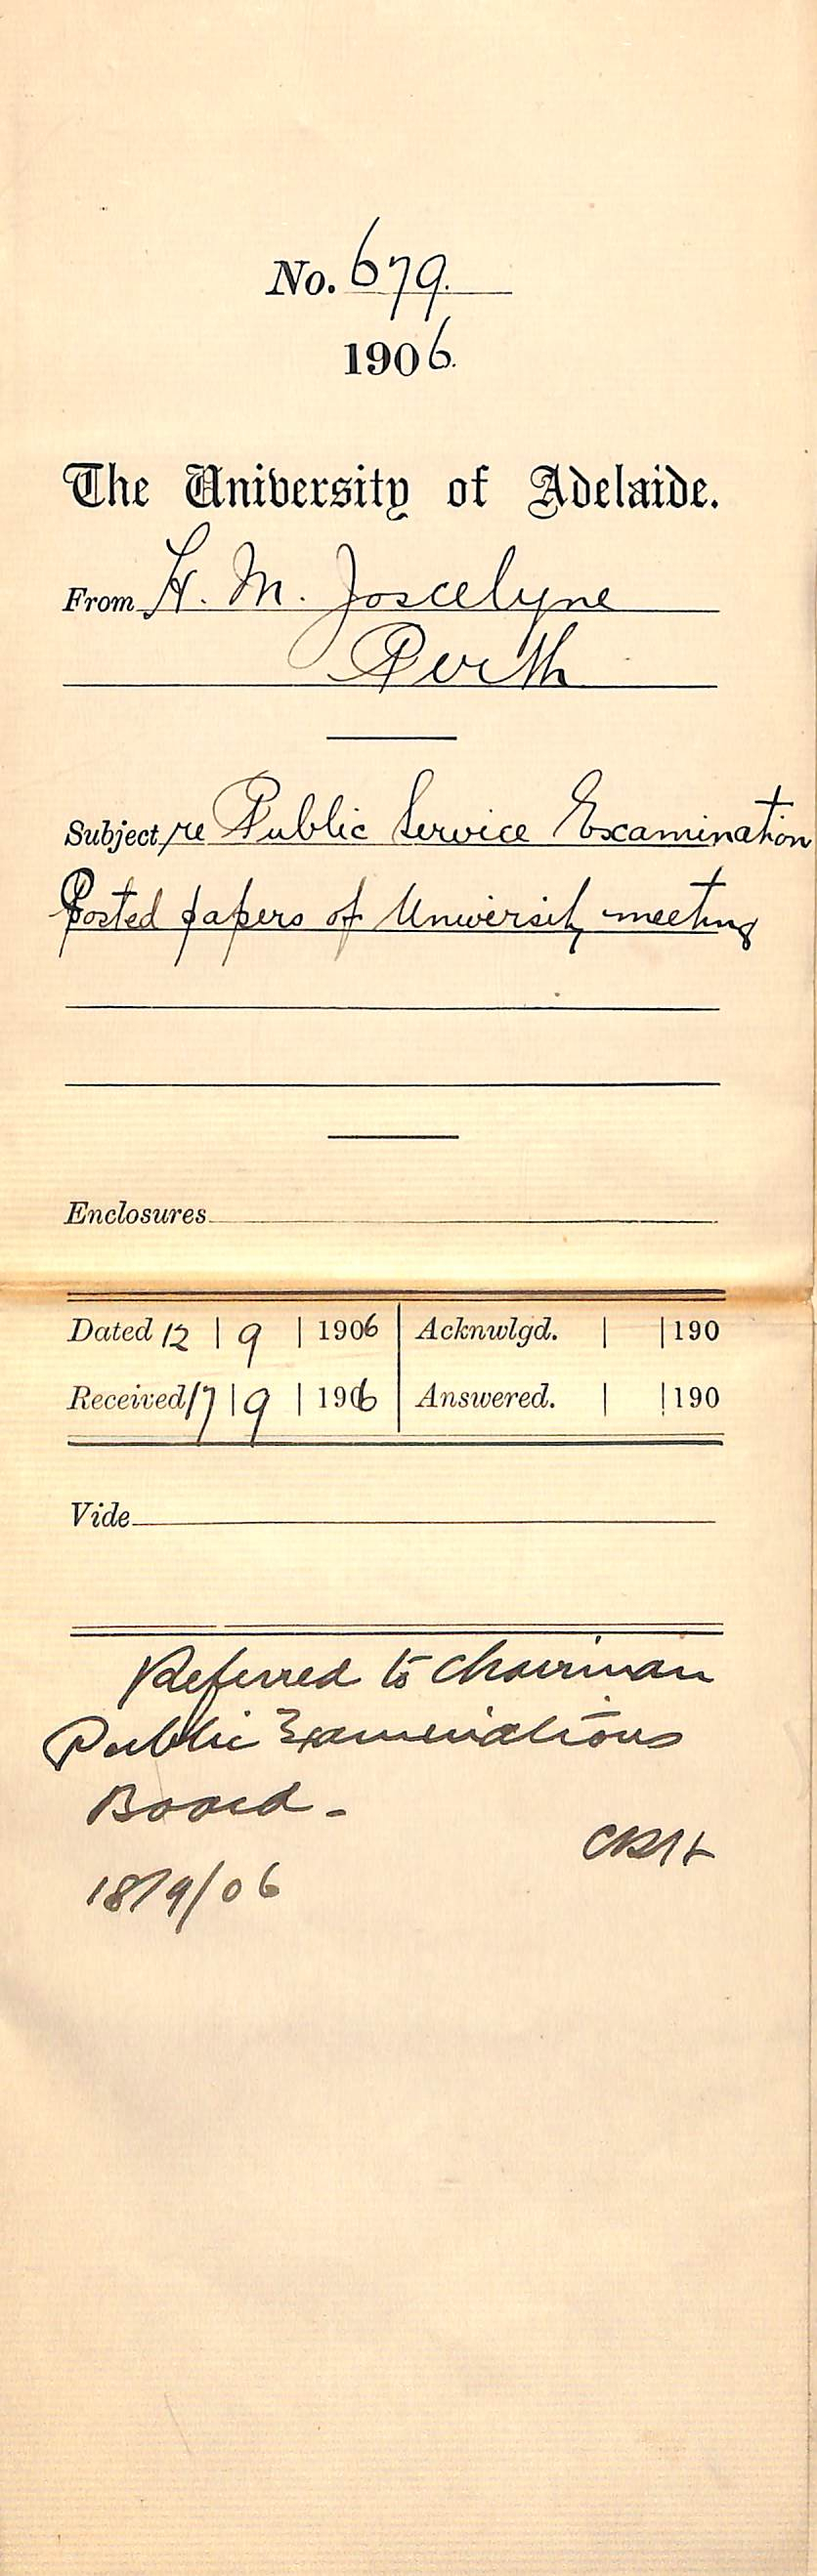 No. 679.
1906.
The University of Adelaide.
From H. M. Joscelyne
Perth
Subject re Public Service Examination
Posted papers of University meeting
Enclosures
Dated 12 | 9 | 1906 | Acknwlgd. | | 190
Received 17 | 9 | 1906 | Answered. | | 190
Vide
Referred to Chairman
Public Examinations
Board -
CRH
18/9/06